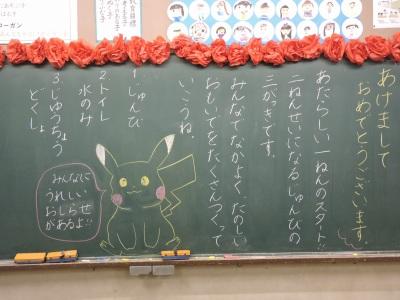 あけまして
おめでとうございます。
あたらしい一ねんのスタート!!
二ねんせいになるじゅんびの
三がっきです。
みんなでなかよく、たのしい
おもいでをたくさんつくって
いこうね。
1.じゅんび
2.トイレ
水のみ
3.じゆうちょう
どくしょ
みんなに
うれしい
おしらせ
があるよ!!